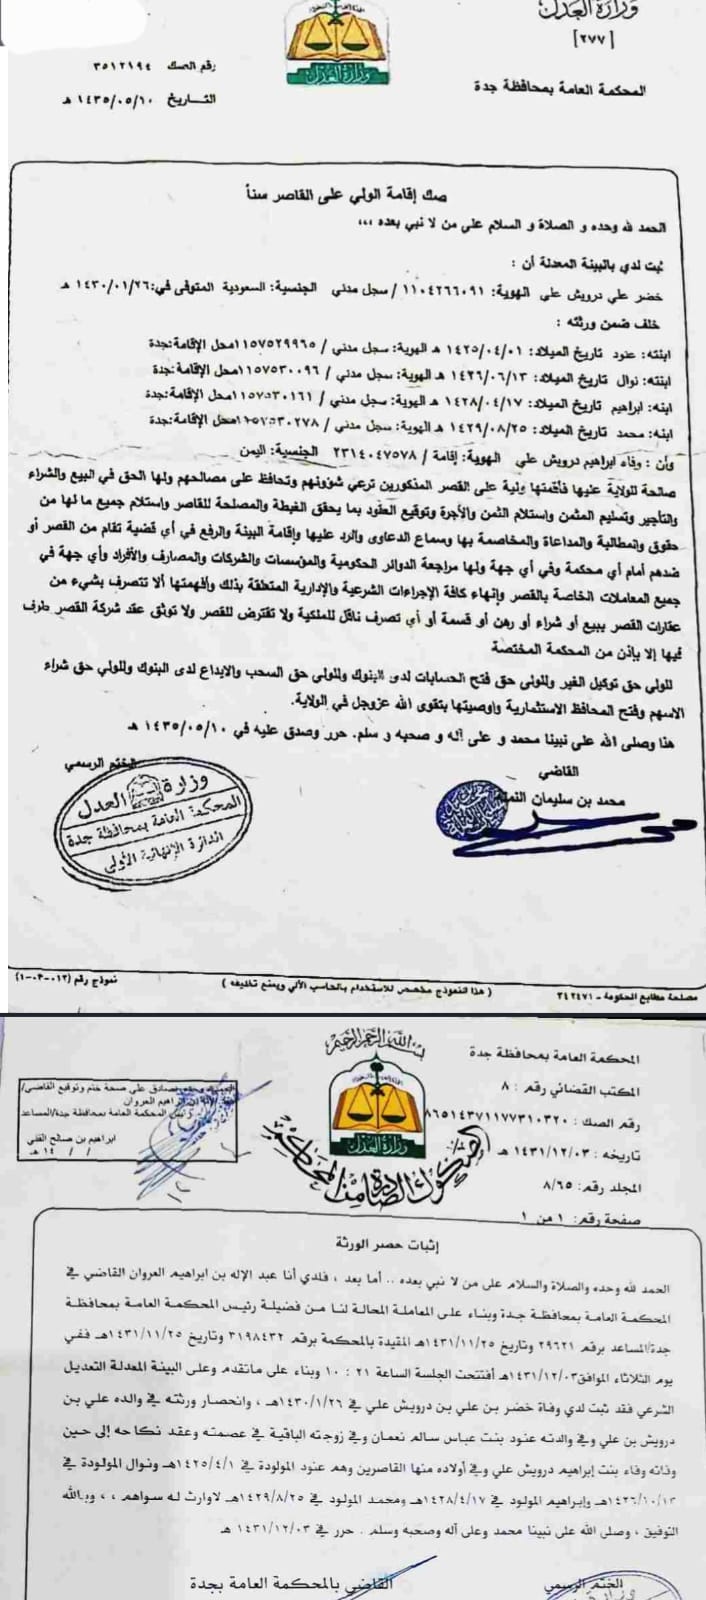 وزارة العدل
[٢٧٧]
المحكمة العامة بمحافظة جدة
رقم الصك ٣٥١٢١٩٤
التاريخ ١٤٣٥/٠٥/١٠ هـ
وزارة العدل
صك إقامة الولي على القاصر سناً
الحمد لله وحده و الصلاة و السلام على من لا نبي بعده ،،،
ثبت لدي بالبينة المعدلة أن :
خضر علي درويش علي الهوية: سجل مدني / ١١٠٤٢٦٦٠٩١ الجنسية: السعودية المتوفى في: ١٤٣٠/٠١/٢٦ هـ
خلف ضمن ورثته :
ابنته: عنود تاريخ الميلاد: ١٤٢٥/٠٤/٠١ هـ الهوية: سجل مدني / ١١٥٧٥٢٩٩٦٥ محل الإقامة:جدة
ابنته: نوال تاريخ الميلاد: ١٤٢٦/٠٦/١٣ هـ الهوية: سجل مدني / ١١٥٧٥٣٠٠٩٦ محل الإقامة:جدة
ابنه: ابراهيم تاريخ الميلاد: ١٤٢٨/٠٤/١٧ هـ الهوية: سجل مدني / ١١٥٧٥٣٠١٦١ محل الإقامة:جدة
ابنه: محمد تاريخ الميلاد: ١٤٢٩/٠٨/٢٥ هـ الهوية: سجل مدني / ١١٥٧٥٣٠٢٧٨ محل الإقامة:جدة
وأن : وفاء ابراهيم درويش علي الهوية: إقامة / ٢٣١٤٠٤٧٥٧٨ الجنسية: اليمن
صالحة للولاية عليها فأقمتها ولية على القصر المذكورين ترعي شؤونهم وتحافظ على مصالحهم ولها الحق في البيع والشراء
والتأجير وتسليم المثمن واستلام الثمن والأجرة وتوقيع العقود بما يحقق الغبطة والمصلحة للقاصر واستلام جميع ما لها من
حقوق والمطالبة والمداعاة والمخاصمة بها وسماع الدعاوى والرد عليها وإقامة البينة والرفع في أي قضية تقام من القصر أو
ضدهم أمام أي محكمة وفي أي جهة ولها مراجعة الدوائر الحكومية والمؤسسات والشركات والمصارف والأفراد وأي جهة في
جميع المعاملات الخاصة بالقصر وإنهاء كافة الإجراءات الشرعية والإدارية المتعلقة بذلك وأفهمتها ألا تتصرف بشيء من
عقارات القصر ببيع أو شراء أو رهن أو قسمة أو أي تصرف ناقل للملكية ولا تقترض للقصر ولا توثق عقد شركة القصر طرف
فيها إلا بإذن من المحكمة المختصة
للولي حق توكيل الغير وللولي حق فتح الحسابات لدى البنوك وللولي حق السحب والايداع لدى البنوك وللولي حق شراء
الاسهم وفتح المحافظ الاستثمارية واوصيتها بتقوى الله عزوجل في الولاية.
هذا وصلى الله على نبينا محمد و على آله و صحبه و سلم. حرر وصدق عليه في ١٤٣٥/٠٥/١٠ هـ
القاضي
محمد بن سليمان
الختم الرسمي
وزارة العدل
المحكمة العامة بمحافظة جدة
الدائرة الإنهائية الأولى
مصلحة مطابع الحكومة - ٣٤٢٤٧١
( هذا النموذج مخصص للاستخدام بالحاسب الآلي ويمنع تغليفه )
نموذج رقم (١٢-٠٣-٠١)
بسم الله الرحمن الرحيم
المحكمة العامة بمحافظة جدة
المكتب القضائي رقم : ٨
رقم الصك : ٨٦٥١٤٣٧١١٧٧٣١٠٣٢٠
تاريخه : ١٤٣١/١٢/٠٣ هـ
المجلد رقم: ٨/٦٥
صفحة رقم: ١ من ١
وزارة العدل
صكوك الصادرة من المحاكم
نصادق على صحة ختم وتوقيع القاضي/
ابراهيم العروان
رئيس المحكمة العامة بمحافظة جدة/المساعد
ابراهيم بن صالح
/ / ١٤ هـ
إثبات حصر الورثة
الحمد لله وحده والصلاة والسلام على من لا نبي بعده .. أما بعد ، فلدي أنا عبد الإله بن ابراهيم العروان القاضي في
المحكمة العامة بمحافظة جدة وبناء على المعاملة المحالة لنا من فضيلة رئيس المحكمة العامة بمحافظة
جدة/المساعد برقم ٢٩٦٢١ وتاريخ ١٤٣١/١١/٢٥هـ المقيدة بالمحكمة برقم ٣١٩٨٤٣٢ وتاريخ ١٤٣١/١١/٢٥هـ ففي
يوم الثلاثاء الموافق١٤٣١/١٢/٠٣هـ أفتتحت الجلسة الساعة ٢١ : ١٠ وبناء على ماتقدم وعلى البينة المعدلة التعديل
الشرعي فقد ثبت لدي وفاة خضر بن علي بن درويش علي في ١٤٣٠/١/٢٦هـ ، وانحصار ورثته في والده علي بن
درويش بن علي وفي والدته عنود بنت عباس سالم نعمان وفي زوجته الباقية في عصمته وعقد نكاحه إلى حين
وفاته وفاء بنت إبراهيم درويش علي وفي أولاده منها القاصرين وهم عنود المولودة في ١٤٢٥/٤/١هـ ونوال المولودة في
١٤٢٦/١٠/١٣هـ وإبراهيم المولود في ١٤٢٨/٤/١٧هـ ومحمد المولود في ١٤٢٩/٨/٢٥هـ لاوارث له سواهم ، ، وبالله
التوفيق ، وصلى الله على نبينا محمد وعلى آله وصحبه وسلم . حرر في ١٤٣١/١٢/٠٣ هـ
الختم الرسمي
القاضي بالمحكمة العامة بجدة